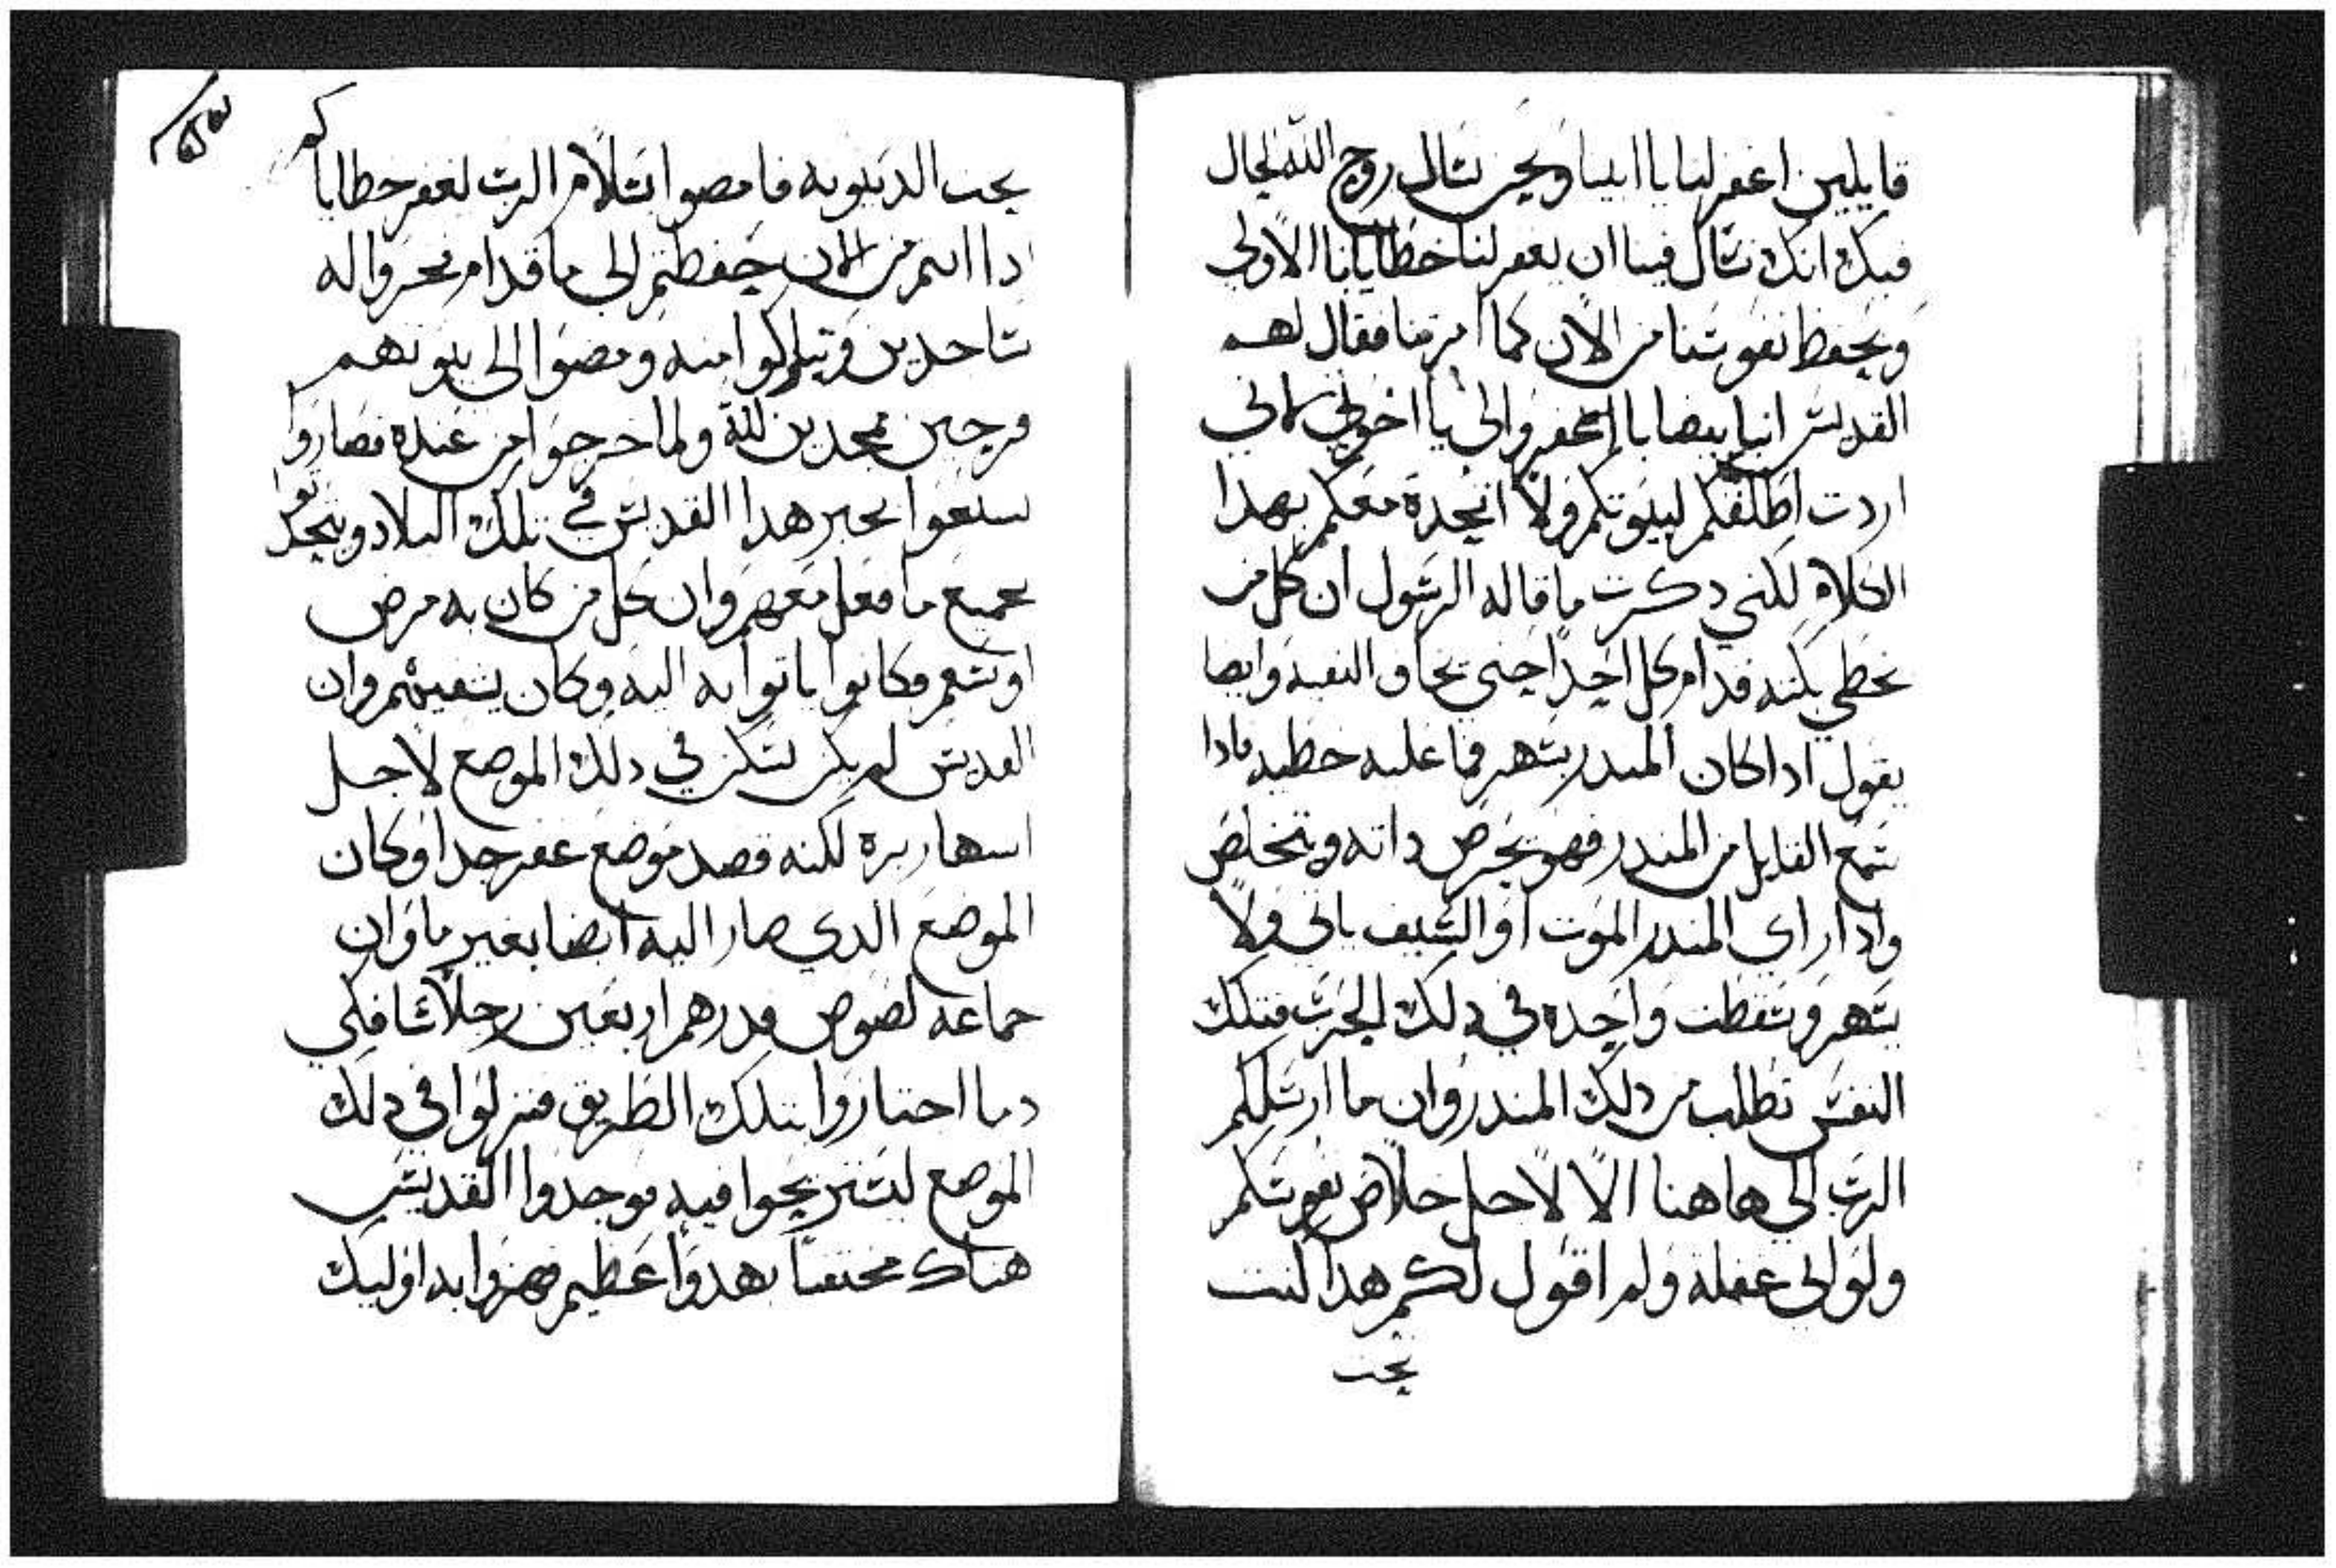 قايلين اغفر لنا يا ابينا ونحن نسال روح الله الحال
فيك انك تسال فينا ان يغفر لنا خطايانا الاولي
ويحفظ نفوسنا من الان كما امرتنا فقال لهم
القديس انبا بيضابا اغفروا لي يا اخوتي لاني
اردت اطلقكم لبيوتكم ولا اتحدت معكم بهدا
الكلام لكني دكرت ما قاله الرسول ان كل من
يخطي بكته قدام كل احد حتي يخاف البقيه وايضا
يقول ادا كان المندر يسهر فما عليه خطيه فادا
سمع القايل من المندر فهو يحرص داته ويتخلص
وادا راي المندر الموت او السيف ياتي ولا
يسهر وسقطت واحده في دلك الحرب فتلك
النفس تطلب من دلك المندر وان ما ارسلكم
الرب الي هاهنا الا لاجل خلاص نفوسكم
ولو لي عفله ولم اقول لكم هدا لكنت
تحت
تحت الدينونه فامضوا بسلام الرب يغفر خطاياكم
ادا انتم من الان حفظتم الي ما قدام فخروا له
ساجدين وتباركوا منه ومضوا الي بيوتهم
فرحين ممجدين لله ولما خرجوا من عنده فصاروا
يسمعوا بخبر هدا القديس في تلك البلاد ويتحدثوا
بجميع ما فعل معهم وان كل من كان به مرض
او سقم فكانوا ياتوا به اليه وكان يشفيهم وان
القديس لم يكن يسكن في دلك الموضع لاجل
اسهار بره لكنه قصد موضع عفر جدا وكان
الموضع الدي صار اليه ايضا بغير ما وان
جماعه لصوص قدرهم اربعين رجلا سافكي
دما اجتازوا بتلك الطريق فنزلوا في دلك
الموضع ليستريحوا فيه فوجدوا القديس
هناك مختفيا بهدوا عظيم فهزوا به اوليك